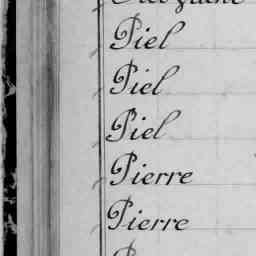 Piel
Piel
Piel
Pierre
Pierre